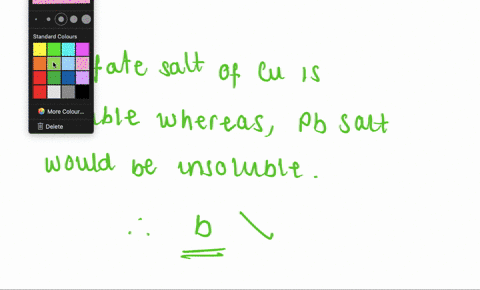 Standard Colours
More Colour...
Delete
fate salt of Cu is
ble whereas, Pb salt
would be insoluble.
∴ b